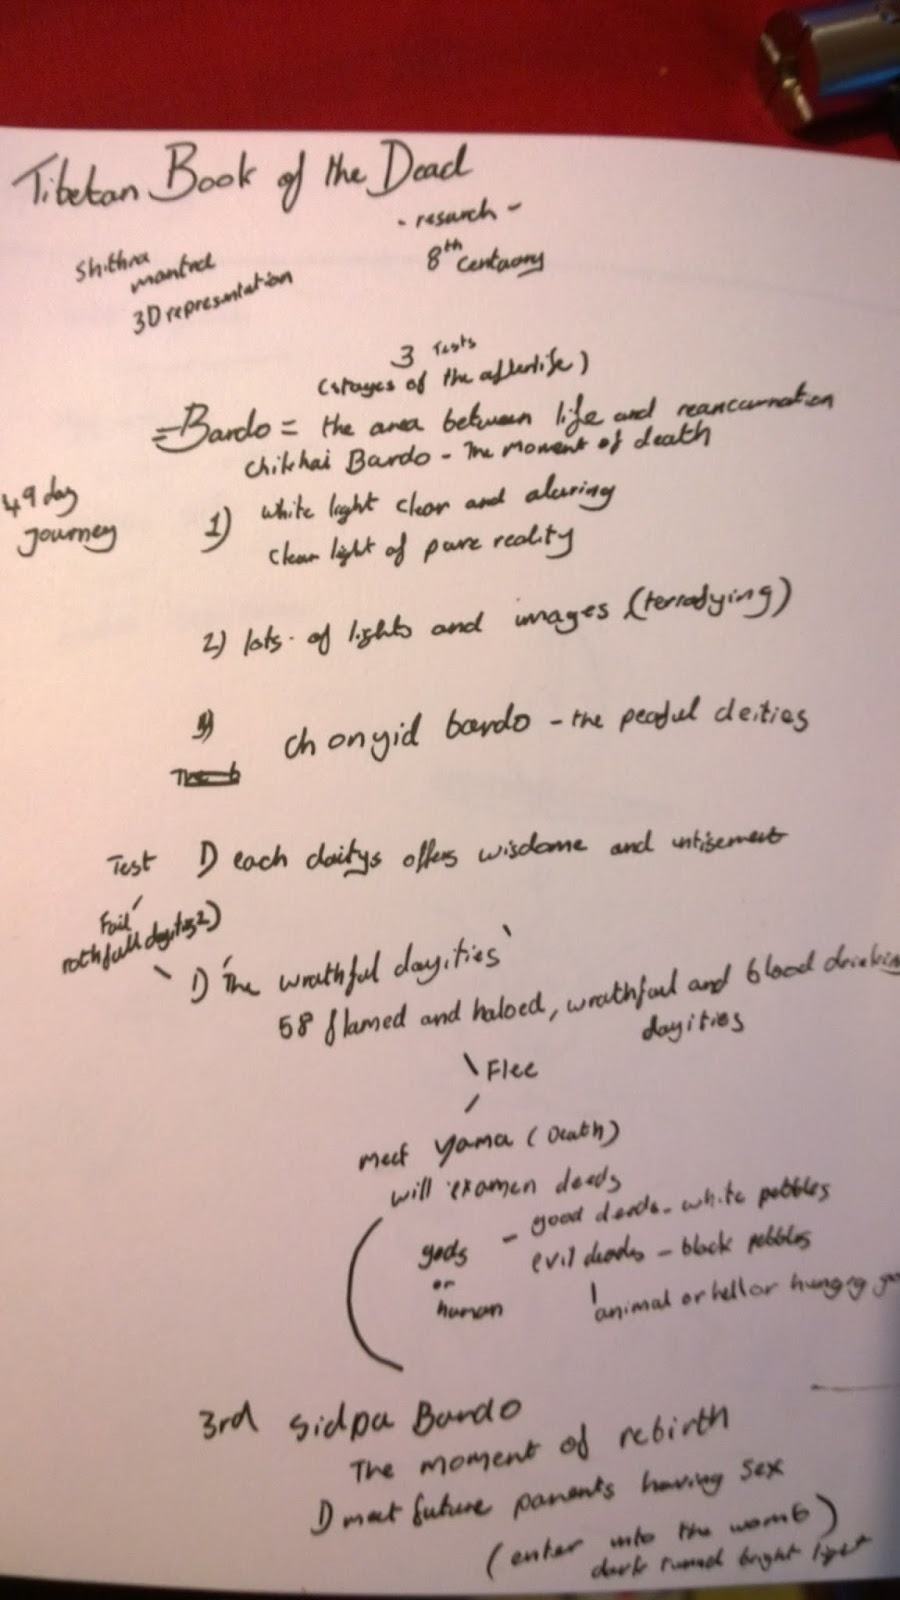 Tibetan Book of the Dead
- resarch -
8th centaory
Shithra
mantra
3D represntation
3 Tests
(stages of the afterlife)
=Bardo = the area between life and reancarnation
chikhai Bardo - The moment of death
49 day
Journey
1) white light clear and aluring
clear light of pure reality
2) lots of lights and images (terrofying)
chonyid bardo - the peaful deities
Test 1) each daitys offers wisdome and intisement
Fail
rothfull dayitis 2)
1) 'The wrathful dayities'
58 flamed and haloed, wrathfull and blood drinking
dayities
Flee
meet Yama (Death)
will examen deeds
gods - good deeds - white pebbles
or evil deeds - black pebbles
human animal or hell or hungry
3rd Sidpa Bardo
The moment of rebirth
1) meet future parents having sex
(enter into the womb)
dark tunnel bright light